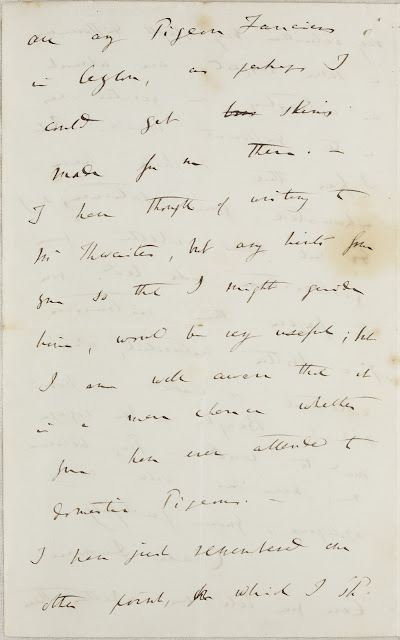 are any Pigeon Fanciers
in Ceylon, as perhaps I
could get skins
made for me there. —
I have thought of writing to
Mr Thwaites, but any hints from
you so that I might guide
him, would be very useful; but
I am well aware that it
is a mere chance whether
you have ever attended to
domestic Pigeons. —
I have just remembered one
other point, on which I shd.